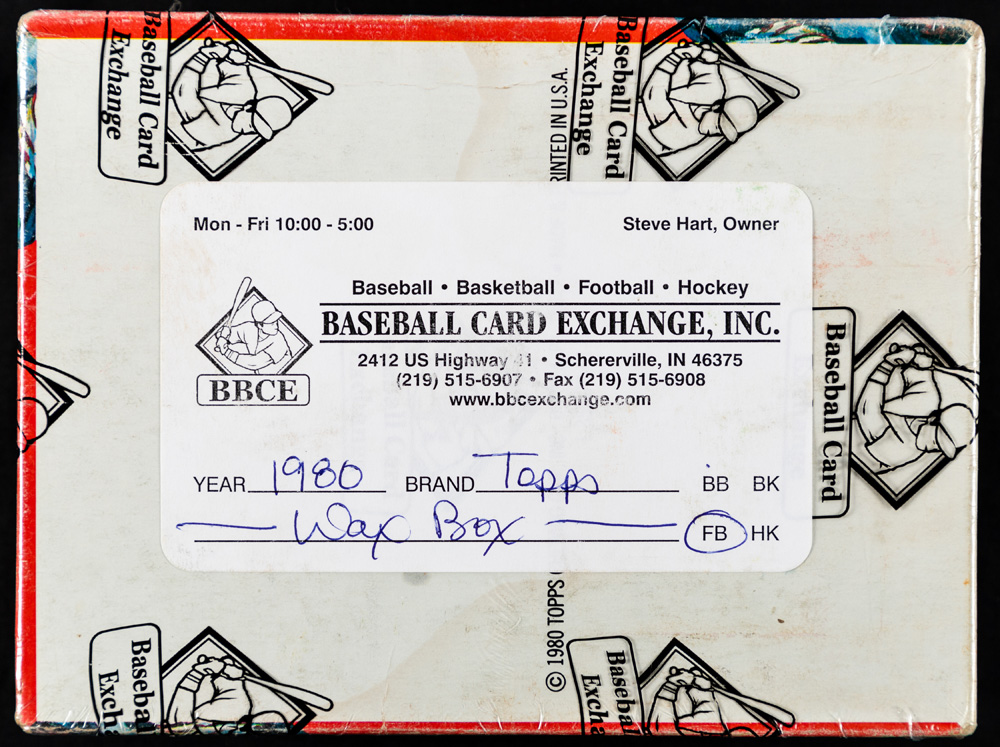 Baseball Card
Exchange
Baseball Card
Exchange
RINTED IN U.S.A.
Mon - Fri 10:00 - 5:00
Steve Hart, Owner
Baseball • Basketball • Football • Hockey
BASEBALL CARD EXCHANGE, INC.
2412 US Highway 41 • Schererville, IN 46375
(219) 515-6907 • Fax (219) 515-6908
www.bbcexchange.com
BBCE
YEAR 1980 BRAND Topps BB BK
Wax Box FB HK
Baseball Card
© 1980 TOPPS C
Baseba
Exch
Baseba
Excha